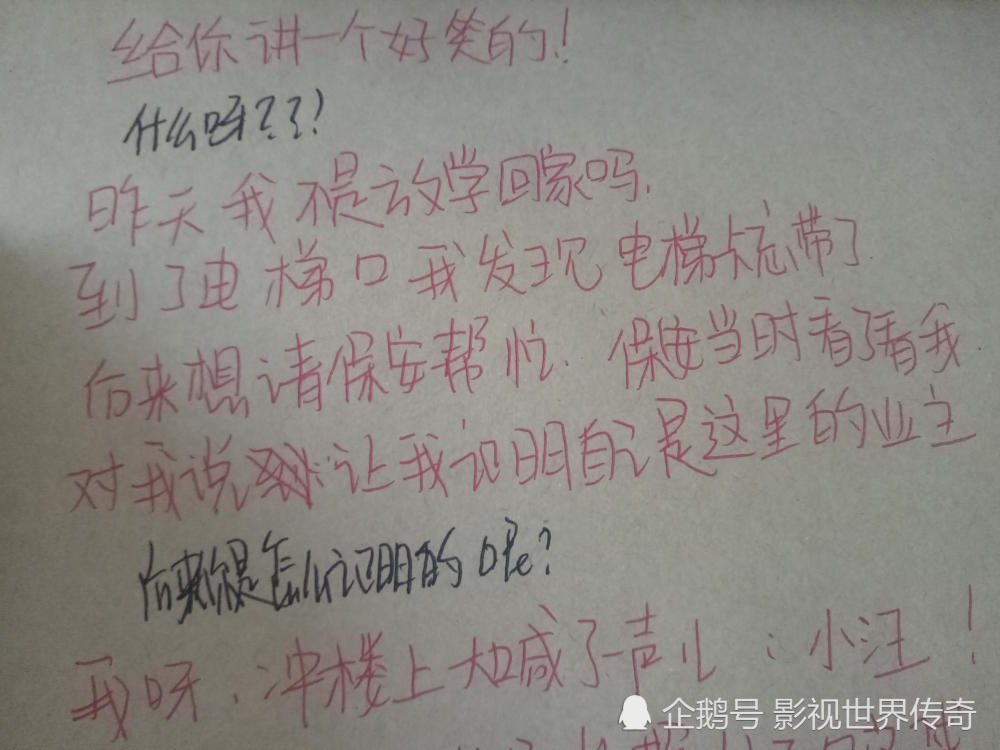 给你讲一个好笑的!
什么呀???
昨天我不是放学回家吗.
到了电梯口我发现电梯卡忘带了.
后来想请保安帮忙.保安当时看了看我.
对我说:让我证明自己是这里的业主
后来你是怎么证明的呢?
我呀.冲楼上大喊了一声儿:小汪!
企鹅号 影视世界传奇